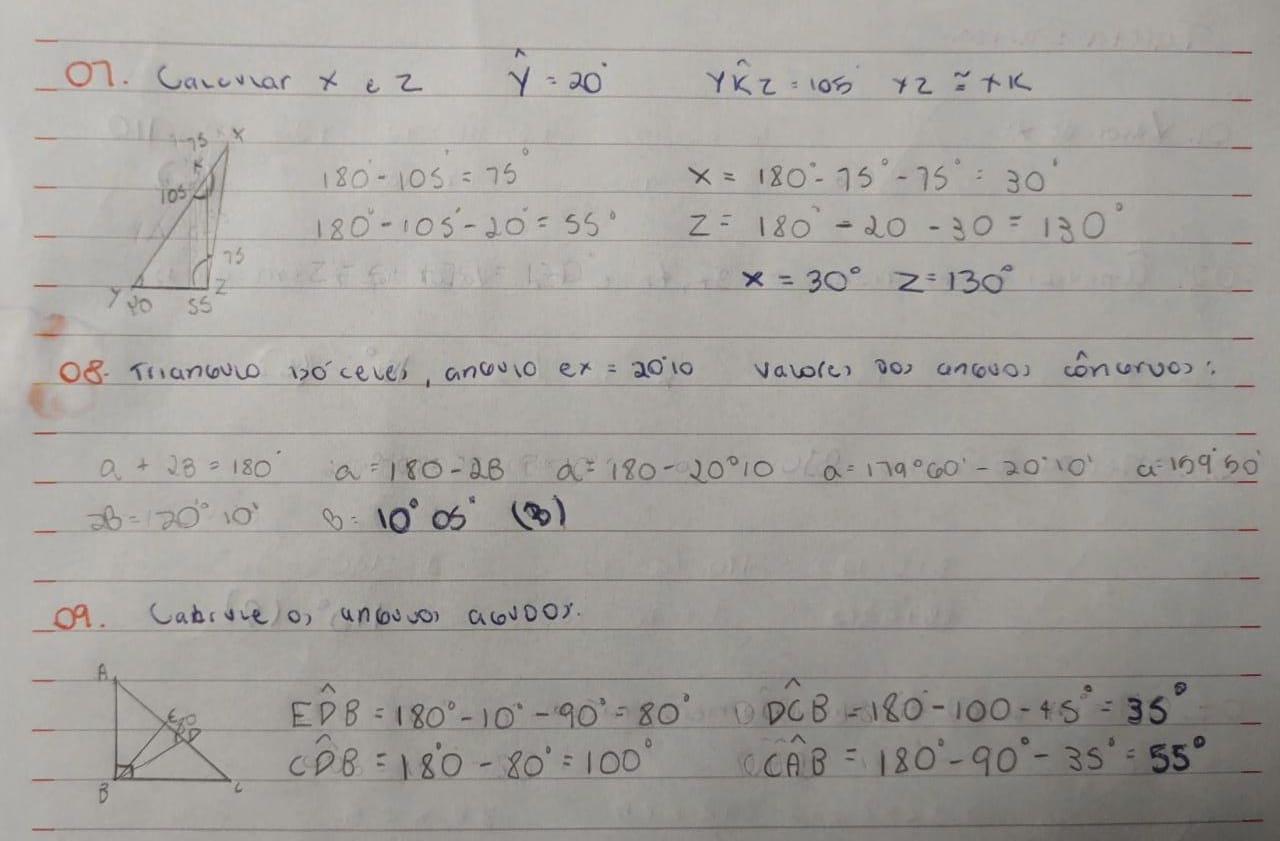 07. Calcular x e z Ŷ = 20° YK̂Z = 105 YZ ≅ XK
75 X
K
105 180° - 105° = 75° x = 180° - 75° - 75° = 30°
180° - 105° - 20° = 55° Z = 180° - 20 - 30 = 130°
75
x = 30° Z = 130°
Y 20 55 Z
08. Triangulo isóceles, angulo ex = 20°10 valores dos angulos côngruos:
a + 2B = 180° a = 180 - 2B a = 180 - 20°10 a = 179°60' - 20°10' a = 159°50'
2B = 20° 10' B = 10° 05° (B)
09. Calcule os angulos agudos.
A
E D
ED̂B = 180° - 10° - 90° = 80° DĈB = 180 - 100 - 45° = 35°
CD̂B = 180 - 80° = 100° CÂB = 180° - 90° - 35° = 55°
B C